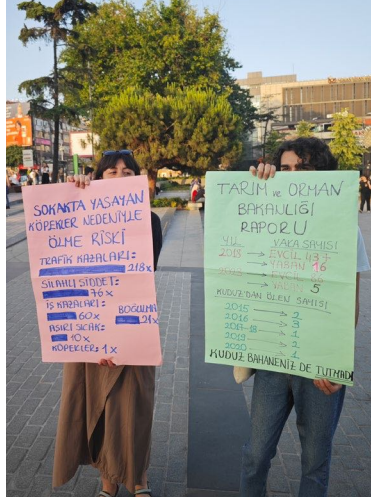 SOKAKTA YAŞAYAN
KÖPEKLER NEDENİYLE
ÖLME RİSKİ
TRAFİK KAZALARI:
218x
SİLAHLI ŞİDDET:
76x
İŞ KAZALARI:
60x
BOĞULMA
21x
AŞIRI SICAK:
10x
KÖPEKLER: 1x
TARIM ve ORMAN
BAKANLIĞI
RAPORU
YIL VAKA SAYISI
2013 → EVCİL 437
YABAN 16
EVCİL
5
KUDUZ'DAN ÖLEN SAYISI
2015 → 2
2016 → 3
2017-18 → 1
2019 → 2
2020 → 1
KUDUZ BAHANENİZ DE TUTMADI